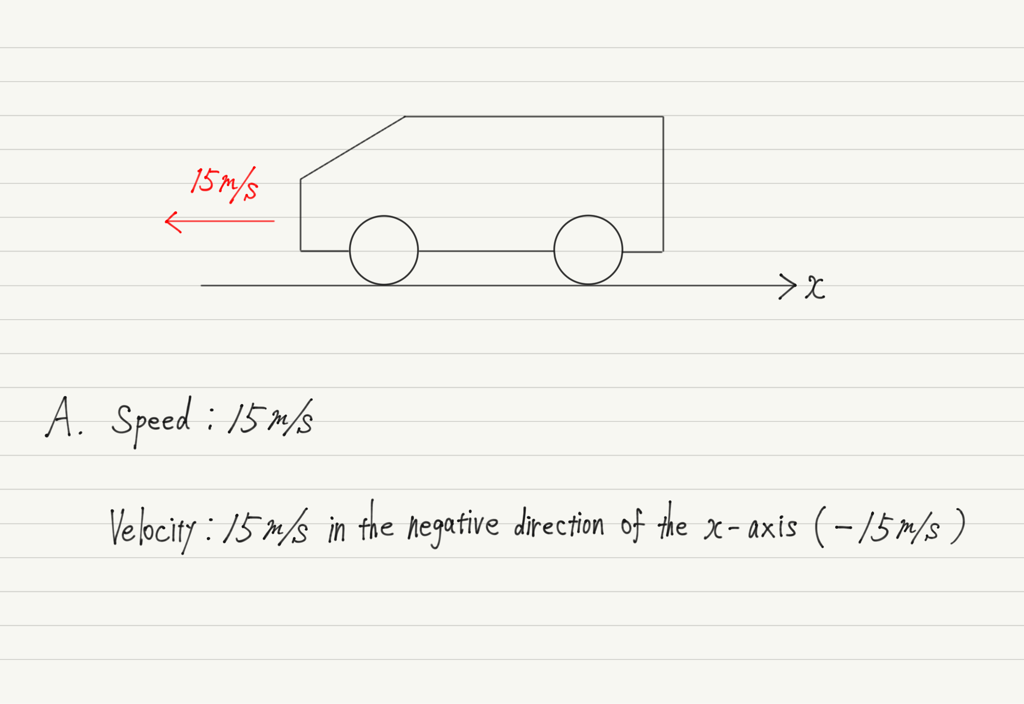 15m/s
x
A. Speed : 15m/s
Velocity : 15m/s in the negative direction of the x-axis (-15m/s)